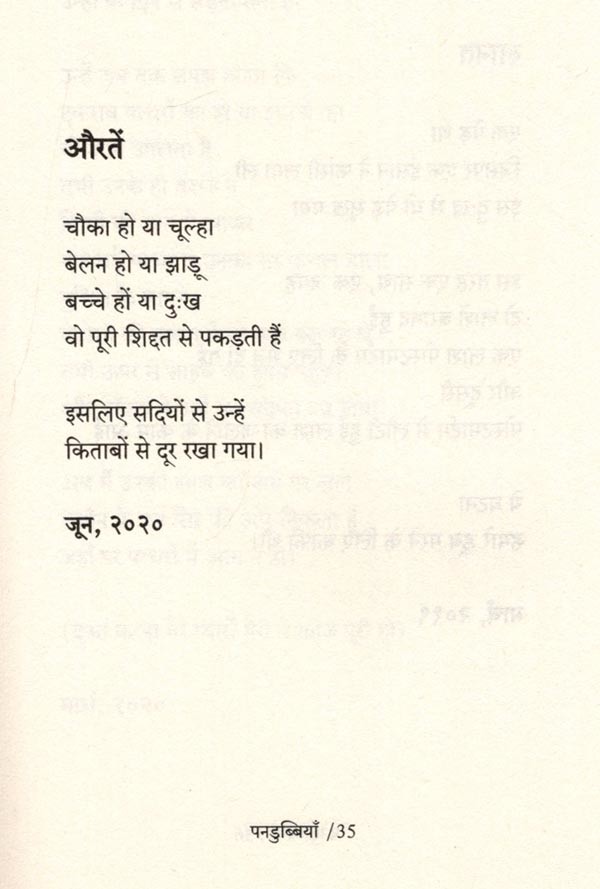 औरतें
चौका हो या चूल्हा
बेलन हो या झाड़ू
बच्चे हों या दुःख
वो पूरी शिद्दत से पकड़ती हैं
इसलिए सदियों से उन्हें
किताबों से दूर रखा गया।
जून, २०२०
पनडुब्बियाँ /35